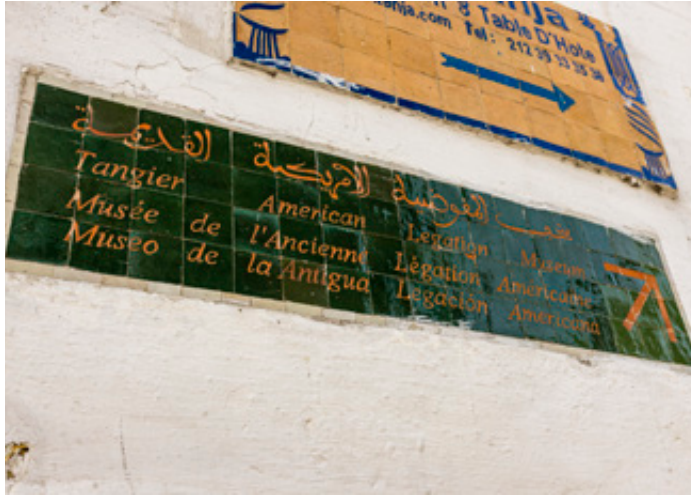 & Table D'Hote
anja.com Tel: 212 39 33 35 38
متحف المفوضية الامريكية القديمة
Tangier American Legation Museum
Musée de l'Ancienne Légation Américaine
Museo de la Antigua Legación Americana